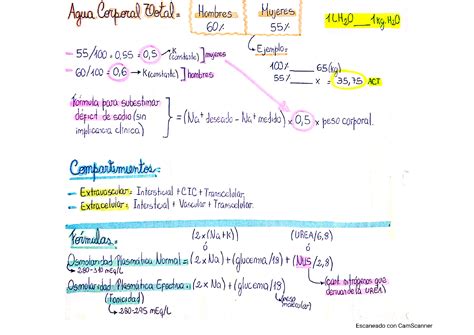 Agua Corporal Total = Hombres 60% Mujeres 55% 1 L H₂O ___ 1 kg H₂O
→ Ejemplo:
- 55/100 = 0.55 = 0,5 → K (constante) ] mujeres
100% ___ 65 (kg)
- 60/100 = 0,6 → K (constante) ] hombres
55% ___ x = 35,75 ACT
Fórmula para subestimar
déficit de sodio (sin
implicancia clínica) } = (Na⁺ deseado - Na⁺ medido) x 0,5 x peso corporal.
Compartimientos:
- Extravascular: Intersticial + CIC + Transcelular.
- Extracelular: Intersticial + Vascular + Transcelular.
Fórmulas: (2x(Na+K)) (UREA/6,8)
ó ó
Osmolaridad Plasmática Normal = (2 x Na) + (glucemia/18) + (NUS/2,8)
↳ 280-310 mEq/L
(cant. nitrógeno que
deriva de la UREA)
Osmolaridad Plasmática Efectiva = (2 x Na) + (glucemia/18)
(tonicidad)
↳ peso molecular)
↳ 280-295 mEq/L
Escaneado con CamScanner